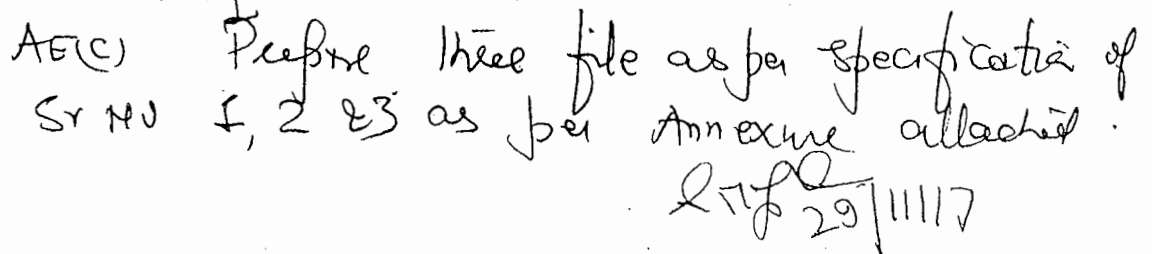 AE(C) Prepare three file as per specification of
Sr No 1, 2 & 3 as per Annexure attached.
29/11/17